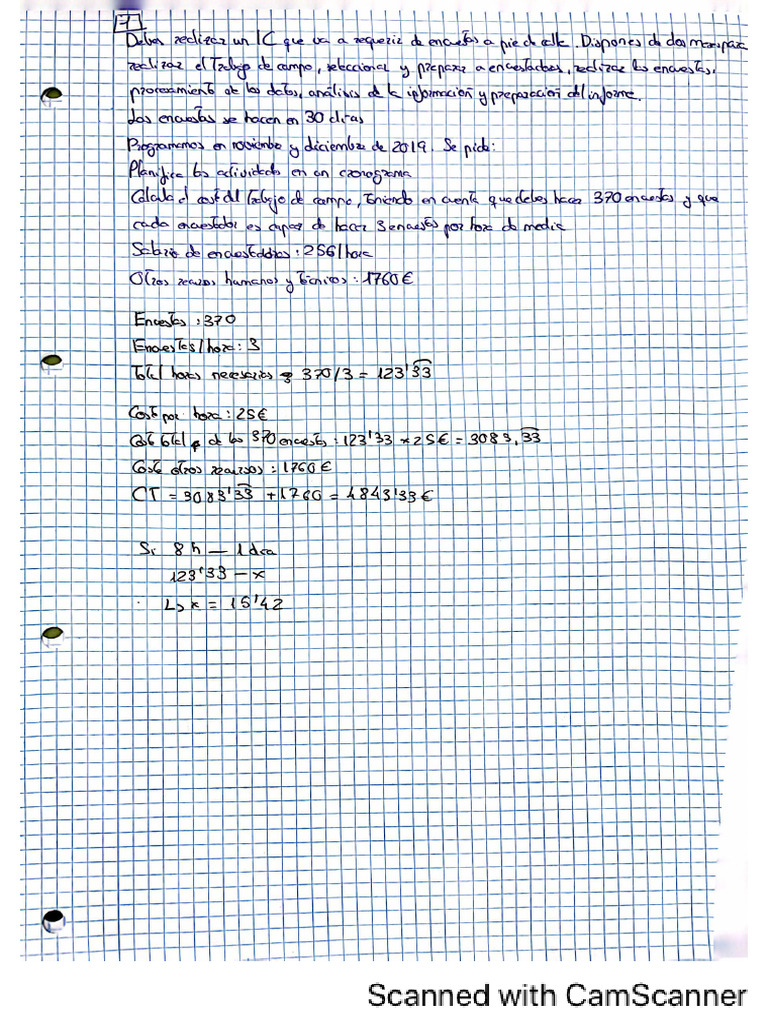 7
Debes realizar un IC que va a requerir de encuestas a pie de calle. Dispones de dos meses para
realizar el trabajo de campo, seleccionar y preparar a encuestadores, realizar las encuestas,
procesamiento de los datos, análisis de la información y preparación del informe.
Las encuestas se hacen en 30 días
Programemos en noviembre y diciembre de 2019. Se pide:
Planifica las actividades en un cronograma
Calcula el coste del trabajo de campo, teniendo en cuenta que debes hacer 370 encuestas y que
cada encuestador es capaz de hacer 3 encuestas por hora de media
Salario de encuestadores: 25€/hora
Otros recursos humanos y técnicos: 1760€
Encuestas: 370
Encuestas/hora: 3
Total horas necesarias 370/3 = 123'33
Coste por hora: 25€
Coste total de las 370 encuestas: 123'33 * 25€ = 3083,33
Coste otros recursos: 1760€
CT = 3083'33 + 1760 = 4843'33€
Si 8h — 1 día
123'33 — x
↳ x = 15'42
Scanned with CamScanner